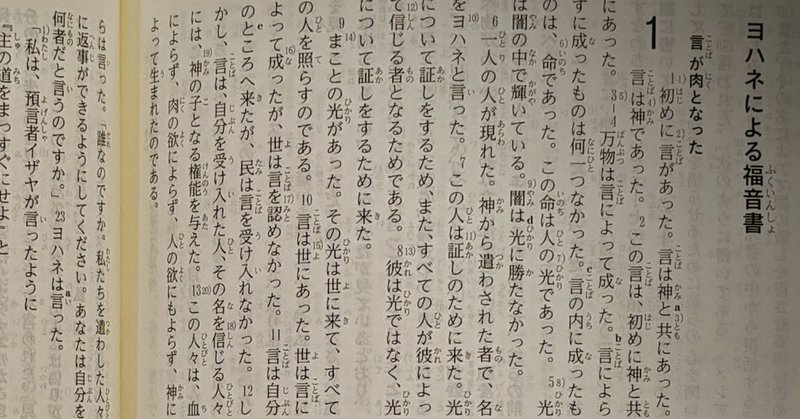 ヨハネによる福音書
言が肉となった
1
1初めに言があった。言は神と共にあった。
言は神であった。2この言は、初めに神と共
にあった。3-4万物は言によって成った。言によら
ずに成ったものは何一つなかった。言の内に成ったも
のは、命であった。この命は人の光であった。5光
は闇の中で輝いている。闇は光に勝たなかった。
6一人の人が現れた。神から遣わされた者で、名
をヨハネと言った。7この人は証しのために来た。光
について証しをするため、また、すべての人が彼によっ
て信じる者となるためである。8彼は光ではなく、光
について証しをするために来た。
9まことの光があった。その光は世に来て、すべて
の人を照らすのである。10言は世にあった。世は言に
よって成ったが、世は言を認めなかった。11言は自分
のところへ来たが、民は言を受け入れなかった。12し
かし、言は、自分を受け入れた人、その名を信じる人々
には、神の子となる権能を与えた。13この人々は、血
によらず、肉の欲によらず、人の欲にもよらず、神に
よって生まれたのである。
らは言った。「誰なのですか。私たちを遣わした人々
に返事ができるようにしてください。あなたは自分を
何者だと言うのですか。」23ヨハネは言った。
「私は、預言者イザヤが言ったように
『主の道をまっすぐにせよ』と